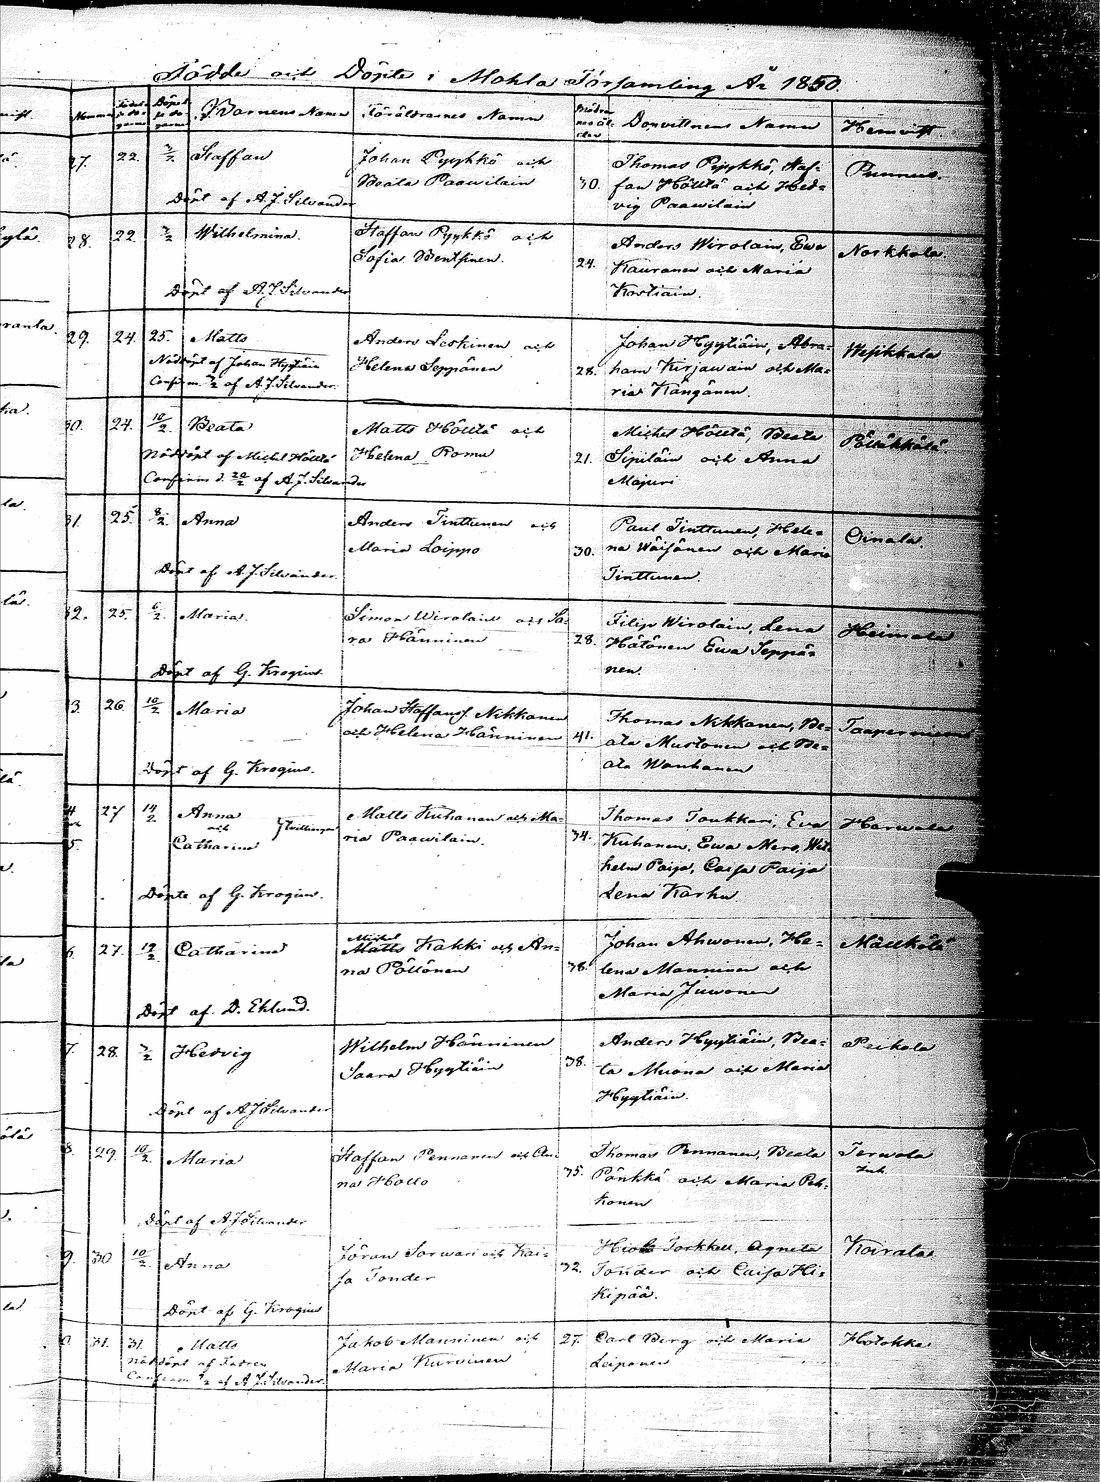 Födde och Döpte i Mohla Församling År 1850.
Barnens Namn
Föräldrarnes Namn
Dopvittnens Namn
Hemvist
27. 22. 3/2 Staffan
Döpt af A.J. Silvander
Johan Pyykkö och
Beata Paawilain
30.
Thomas Pyykkö, Staf-
fan Hölttä och Hed-
vig Paawilain
Punnus.
28. 22. 3/2 Wilhelmina.
Döpt af A.J. Silvander
Staffan Pyykkö och
Sofia
24.
Anders Wirolain, Ewa
Kauranen och Maria
Kostiain.
Norkkola.
29. 24. 25. Matts
Nöddöpt af Johan Hyytiäin
Confirm. 3/2 af A.J. Silvander.
Anders Leskinen och
Helena Seppänen
28.
Johan Hyytiäin, Abra-
ham Kirjawain och Ma-
ria Kängänen.
Wepikkala
30. 24. 10/2 Beata
Nöddöpt af Michel Hölttä
Confirm d. 20/2 af A.J. Silvander
Matts Hölttä och
Helena Romu
21.
Michel Hölttä, Beata
Sipiläin och Anna
Majuri
Pölläkkälä
31. 25. 8/2 Anna
Döpt af A.J. Silvander.
Anders Tinttunen och
Maria Loippo
30.
Paul Tinttunen, Hele-
na Wäisänen och Maria
Tinttunen.
Oinala.
32. 25. 6/2 Maria.
Döpt af G. Krogius.
Simon Wirolain och Sa-
ra Hänninen
28.
Filip Wirolain, Lena
Hätönen Ewa Seppä-
nen.
Heimala
3. 26 10/2 Maria
Döpt af G. Krogius.
Johan Staffansf. Nikkanen
och Helena Hänninen
41.
Thomas Nikkanen, Be-
ata Mustonen och Be-
ata Wanhanen
Taaperniemi
4 och 5. 27 14/2 Anna
och
Catharina
tvillingar
Döpte af G. Krogius.
Matts Kuhanen och Ma-
ria Paawilain.
34.
Thomas Toukkari, Eva
Kuhanen, Ewa Mero, Wil-
helm Paija, Caisa Paija
Lena Karhu
Harwala
6. 27. 14/2 Catharina
Döpt af D. Eklund.
Michel
Matts Kakki och An-
na Pöllönen
38.
Johan Ahwonen, He-
lena Manninen och
Maria Juwonen
Mälkölä
7. 28. 3/2 Hedvig
Döpt af A J Silvander
Wilhelm Hänninen
Saara Hyytiäin
38.
Anders Hyytiäin, Bea-
ta Muona och Maria
Hyytiäin.
Peikola
8. 29. 10/2. Maria
Döpt af A J Silvander
Staffan Pennanen och An-
na Hollo
35.
Thomas Pennanen, Beata
Pönkkä och Maria Pek-
konen
Terwola
9. 30 10/2 Anna
Döpt af G. Krogius
Jöran Sorwari och Kai-
sa Tonder
32.
Torkkel, Agneta
Tonder och Caisa Hi-
kipää.
Koirala
31. 31. Matts
Nöddöpt af Fadren
Confirm 3/2 af A.J. Silvander.
Jakob Manninen och
Maria Kurvinen
27.
Carl Berg och Maria
Leiponen
Hotokka